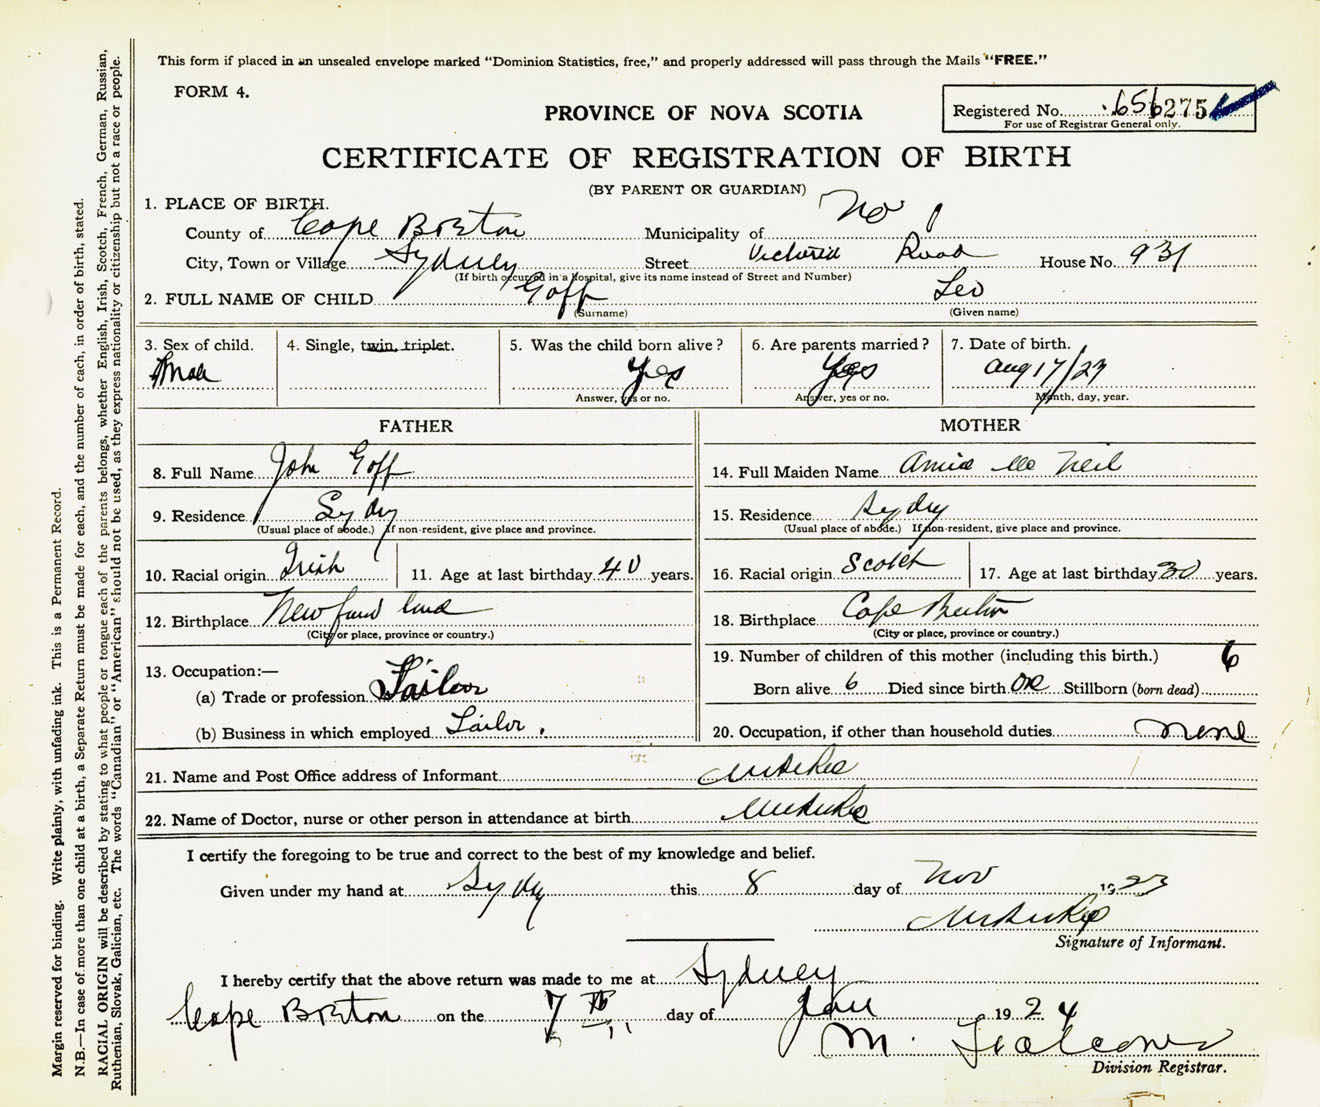 This form if placed in an unsealed envelope marked "Dominion Statistics, free," and properly addressed will pass through the Mails "FREE."
FORM 4.
Registered No. 656275
For use of Registrar General only.
PROVINCE OF NOVA SCOTIA
CERTIFICATE OF REGISTRATION OF BIRTH
(BY PARENT OR GUARDIAN)
1. PLACE OF BIRTH.
County of Cape Breton Municipality of No 1
City, Town or Village Sydney Street Victoria Road House No. 931
(If birth occurred in a Hospital, give its name instead of Street and Number)
2. FULL NAME OF CHILD Goff Leo
(Surname) (Given name)
3. Sex of child. 4. Single, twin, triplet. 5. Was the child born alive? 6. Are parents married? 7. Date of birth.
Male Yes Yes Aug 17/23
Answer, yes or no. Answer, yes or no. Month, day, year.
FATHER MOTHER
8. Full Name John Goff 14. Full Maiden Name Annie Mc Neil
9. Residence Sydny 15. Residence Sydny
(Usual place of abode.) If non-resident, give place and province. (Usual place of abode.) If non-resident, give place and province.
10. Racial origin Irish 11. Age at last birthday 40 years. 16. Racial origin Scotch 17. Age at last birthday 30 years.
12. Birthplace Newfoundland 18. Birthplace Cape Breton
(City or place, province or country.) (City or place, province or country.)
13. Occupation:— 19. Number of children of this mother (including this birth.) 6
(a) Trade or profession Tailor Born alive 6 Died since birth Stillborn (born dead)
(b) Business in which employed Tailor. 20. Occupation, if other than household duties none
21. Name and Post Office address of Informant
22. Name of Doctor, nurse or other person in attendance at birth
I certify the foregoing to be true and correct to the best of my knowledge and belief.
Given under my hand at Sydny this 8 day of Nov 1923
Signature of Informant.
I hereby certify that the above return was made to me at Sydney
Cape Breton on the 7th day of Jan 1924
M.
Division Registrar.
Margin reserved for binding. Write plainly, with unfading ink. This is a Permanent Record.
N.B.—In case of more than one child at a birth, a Separate Return must be made for each, and the number of each, in order of birth, stated.
RACIAL ORIGIN will be described by stating to what people or tongue each of the parents belongs, whether English, Irish, Scotch, French, German, Russian,
Ruthenian, Slovak, Galician, etc. The words "Canadian" or "American" should not be used, as they express nationality or citizenship but not a race or people.